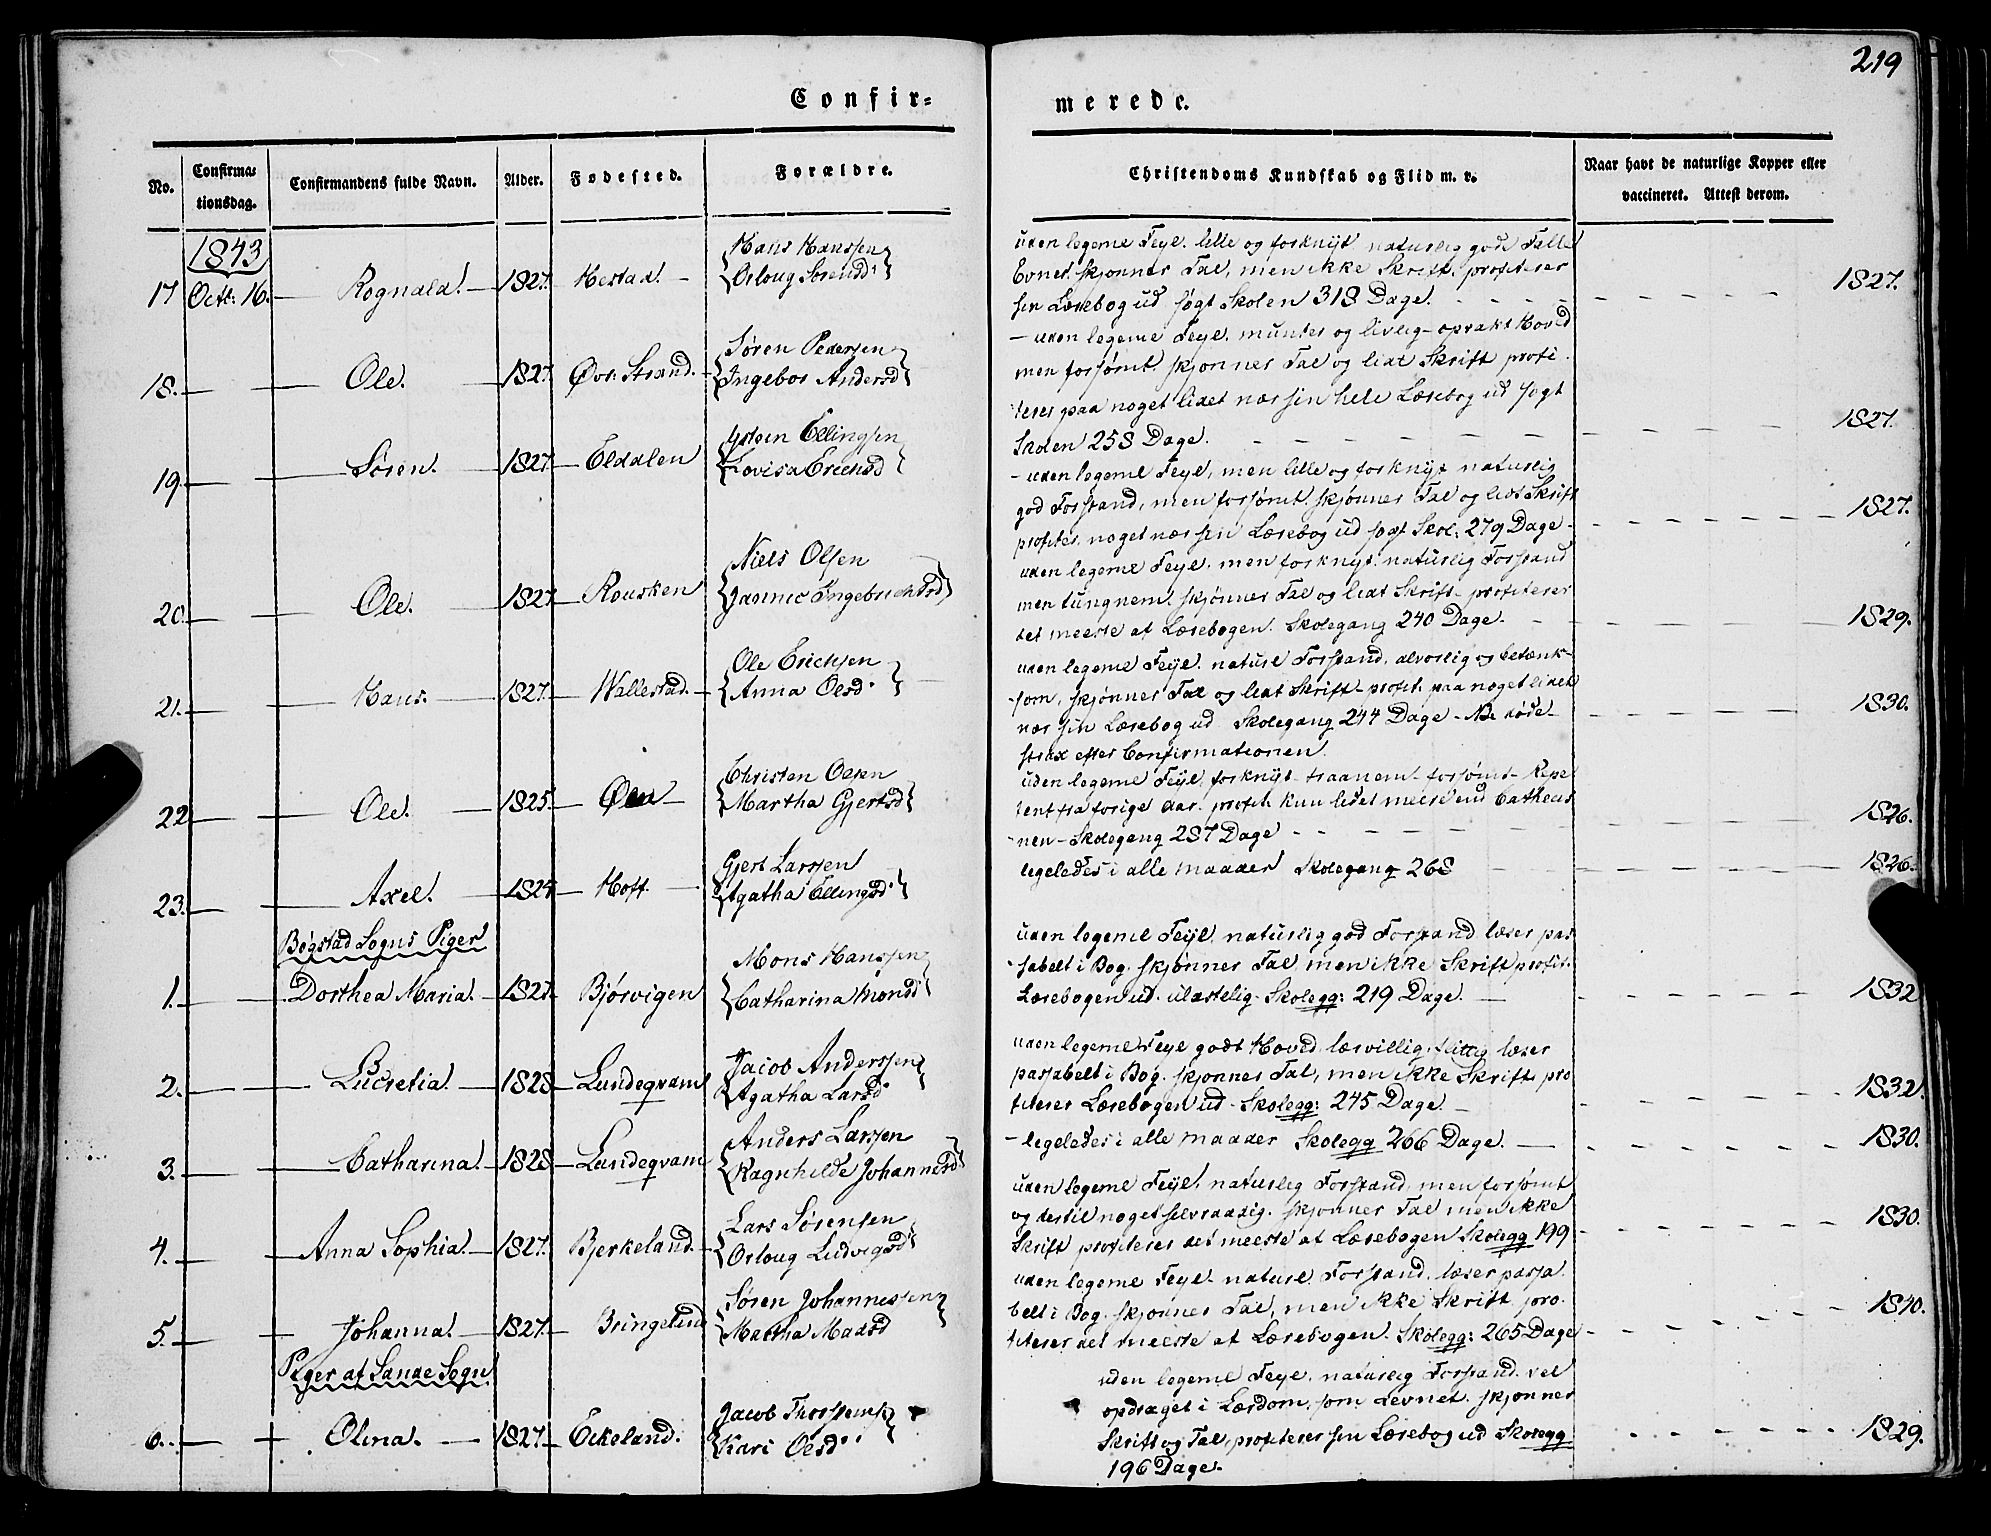 219
Confir-
merede.
No.
Confirma-
tionsdag.
Confirmandens fulde Navn.
Alder.
Fødested.
Forældre.
Christendoms Kundskab og Flid m. v.
Naar havt de naturlige Kopper eller
vaccineret. Attest derom.
1843
17 Octb: 16. — Rognald. — 1827. Hestad. —
Hans Hanssen
Orloug Sørensd:
uden legeme Feyl. lille og forknyt naturlig gode Fælle
Evner. skjønner Tal, men ikke Skrift. profiterer
sin Lærebog ud søgt Skolen 318 Dage. 1827.
18. — Ole. — 1827. Øvr. Strand. —
Søren Pedersen
Ingebor Andersd
— uden legeme Feyl. munter og livlig — oprakt Hoved
men forsømt. skjønner Tal og lidt Skrift profi-
terer paa noget lidet nær sin hele Lærebog ud søgt
Skolen 258 Dage. 1827.
19. — Søren. — 1827. — Eldalen
Ellingsen
Lovisa Erichsd
— uden legeme Feyl, men lille og forknyt naturlig
god Forstand, men forsømt. skjønner Tal og lidt Skrift
profiter. noget nær sin Lærebog ud søgt Skol: 279 Dage — 1827.
20. — Ole. — 1827 — Rousken
Niels Olsen
Jannic Ingebrichtsd
uden legeme Feyl. men forknyt. naturlig Forstand
men tungnem. skjønner Tal og lidt Skrift — profiterer
det meeste af Lærebogen. Skolegang 240 Dage. 1829.
21. — Hans. — 1827. — Wallestad. —
Ole Erichsen
Anna Olsd.
uden legeme Feyl. naturl Forstand, alvorlig og betænk-
som, skjønner Tal og lidt Skrift — profit. paa noget lidet
nær sin Lærebog ud Skolegang 244 Dage — NB. døde
strax efter Confirmationen. 1830.
22 — Ole. — 1825. — Øen —
Christen Olsen
Martha Gjertsd
uden legeme Feyl. forknyt — traanem — forsømt — Repe
tent fra forige Aar. profit. kun lidet meere end Cathecis
nen — Skolegang 287 Dage 1826.
23. — Axel. — 1824 — Hoff. —
Gjert Larssen
Agatha Ellingsd.
legeledes i alle maader Skolegang 268 1826.
Bøgstad Sogns Piger
1. — Dorthea Maria. — 1827. — Bjørvigen
Mons Hanssen
Catharina Monsd
uden legeme Feyl. naturlig god Forstand læser pas
sabelt i Bog. skjønner Tal, men ikke Skrift profit.
Lærebogen ud. ulastelig. Skolegg: 219 Dage. 1832
2. — Lucretia. — 1828 — Lundeqvam
Jacob Anderssen
Agatha Larsd
uden legeme Feyl godt Hoved lærvillig. flittig læser
passabelt i Bog. skjønner Tal, men ikke Skrift pro
fiterer Lærebogen ud — Skolegg: 245 Dage. — 1832.
3. — Catharina. — 1828 — Lundeqvam
Anders Larssen
Ragnhilde Johannesd
— legeledes i alle maader Skolegg 266 Dage. — 1830.
4. — Anna Sophia. — 1827. Bjerkeland. —
Lars Sørensen
Orloug Ludvigsd
uden legeme Feyl, naturlig Forstand, men forsømt
og dertil noget selvraadig. skjønner Tal men ikke
Skrift profiterer det meeste af Lærebogen Skolegg 199 1830.
5. — Johanna. — 1827. — Bringelund
Søren Johannessen
Martha Madsd
uden legeme Feyl. naturl Forstand. læser passa
belt i Bog. skjønner Tal, men ikke Skrift pro.
fiterer det meeste af Lærebogen. Skolegg: 265 Dage 1840.
Piger af Sande Sogn
6. — Olina. — 1827. — Eckeland.
Jacob Thorstens
Kari Olsd
uden legeme Feyl, naturlig Forstand. vel
opdraget i Lærdom, som Levnet. skjønner
Skrift og Tal, profiterer sin Lærebog ud Skolegg
196 Dage. 1829.